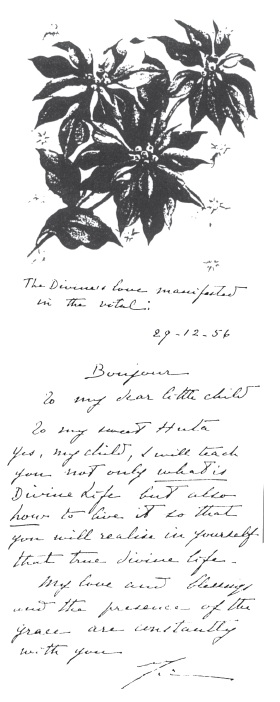 The Divine's love manifested
in the vital:
29-12-56
Bonjour
To my dear little child
To my sweet Huta
Yes, my child, I will teach
you not only what is
Divine Life but also
how to live it so that
you will realise in yourself
that true divine life.
My love and blessings
and the presence of the
grace are constantly
with you